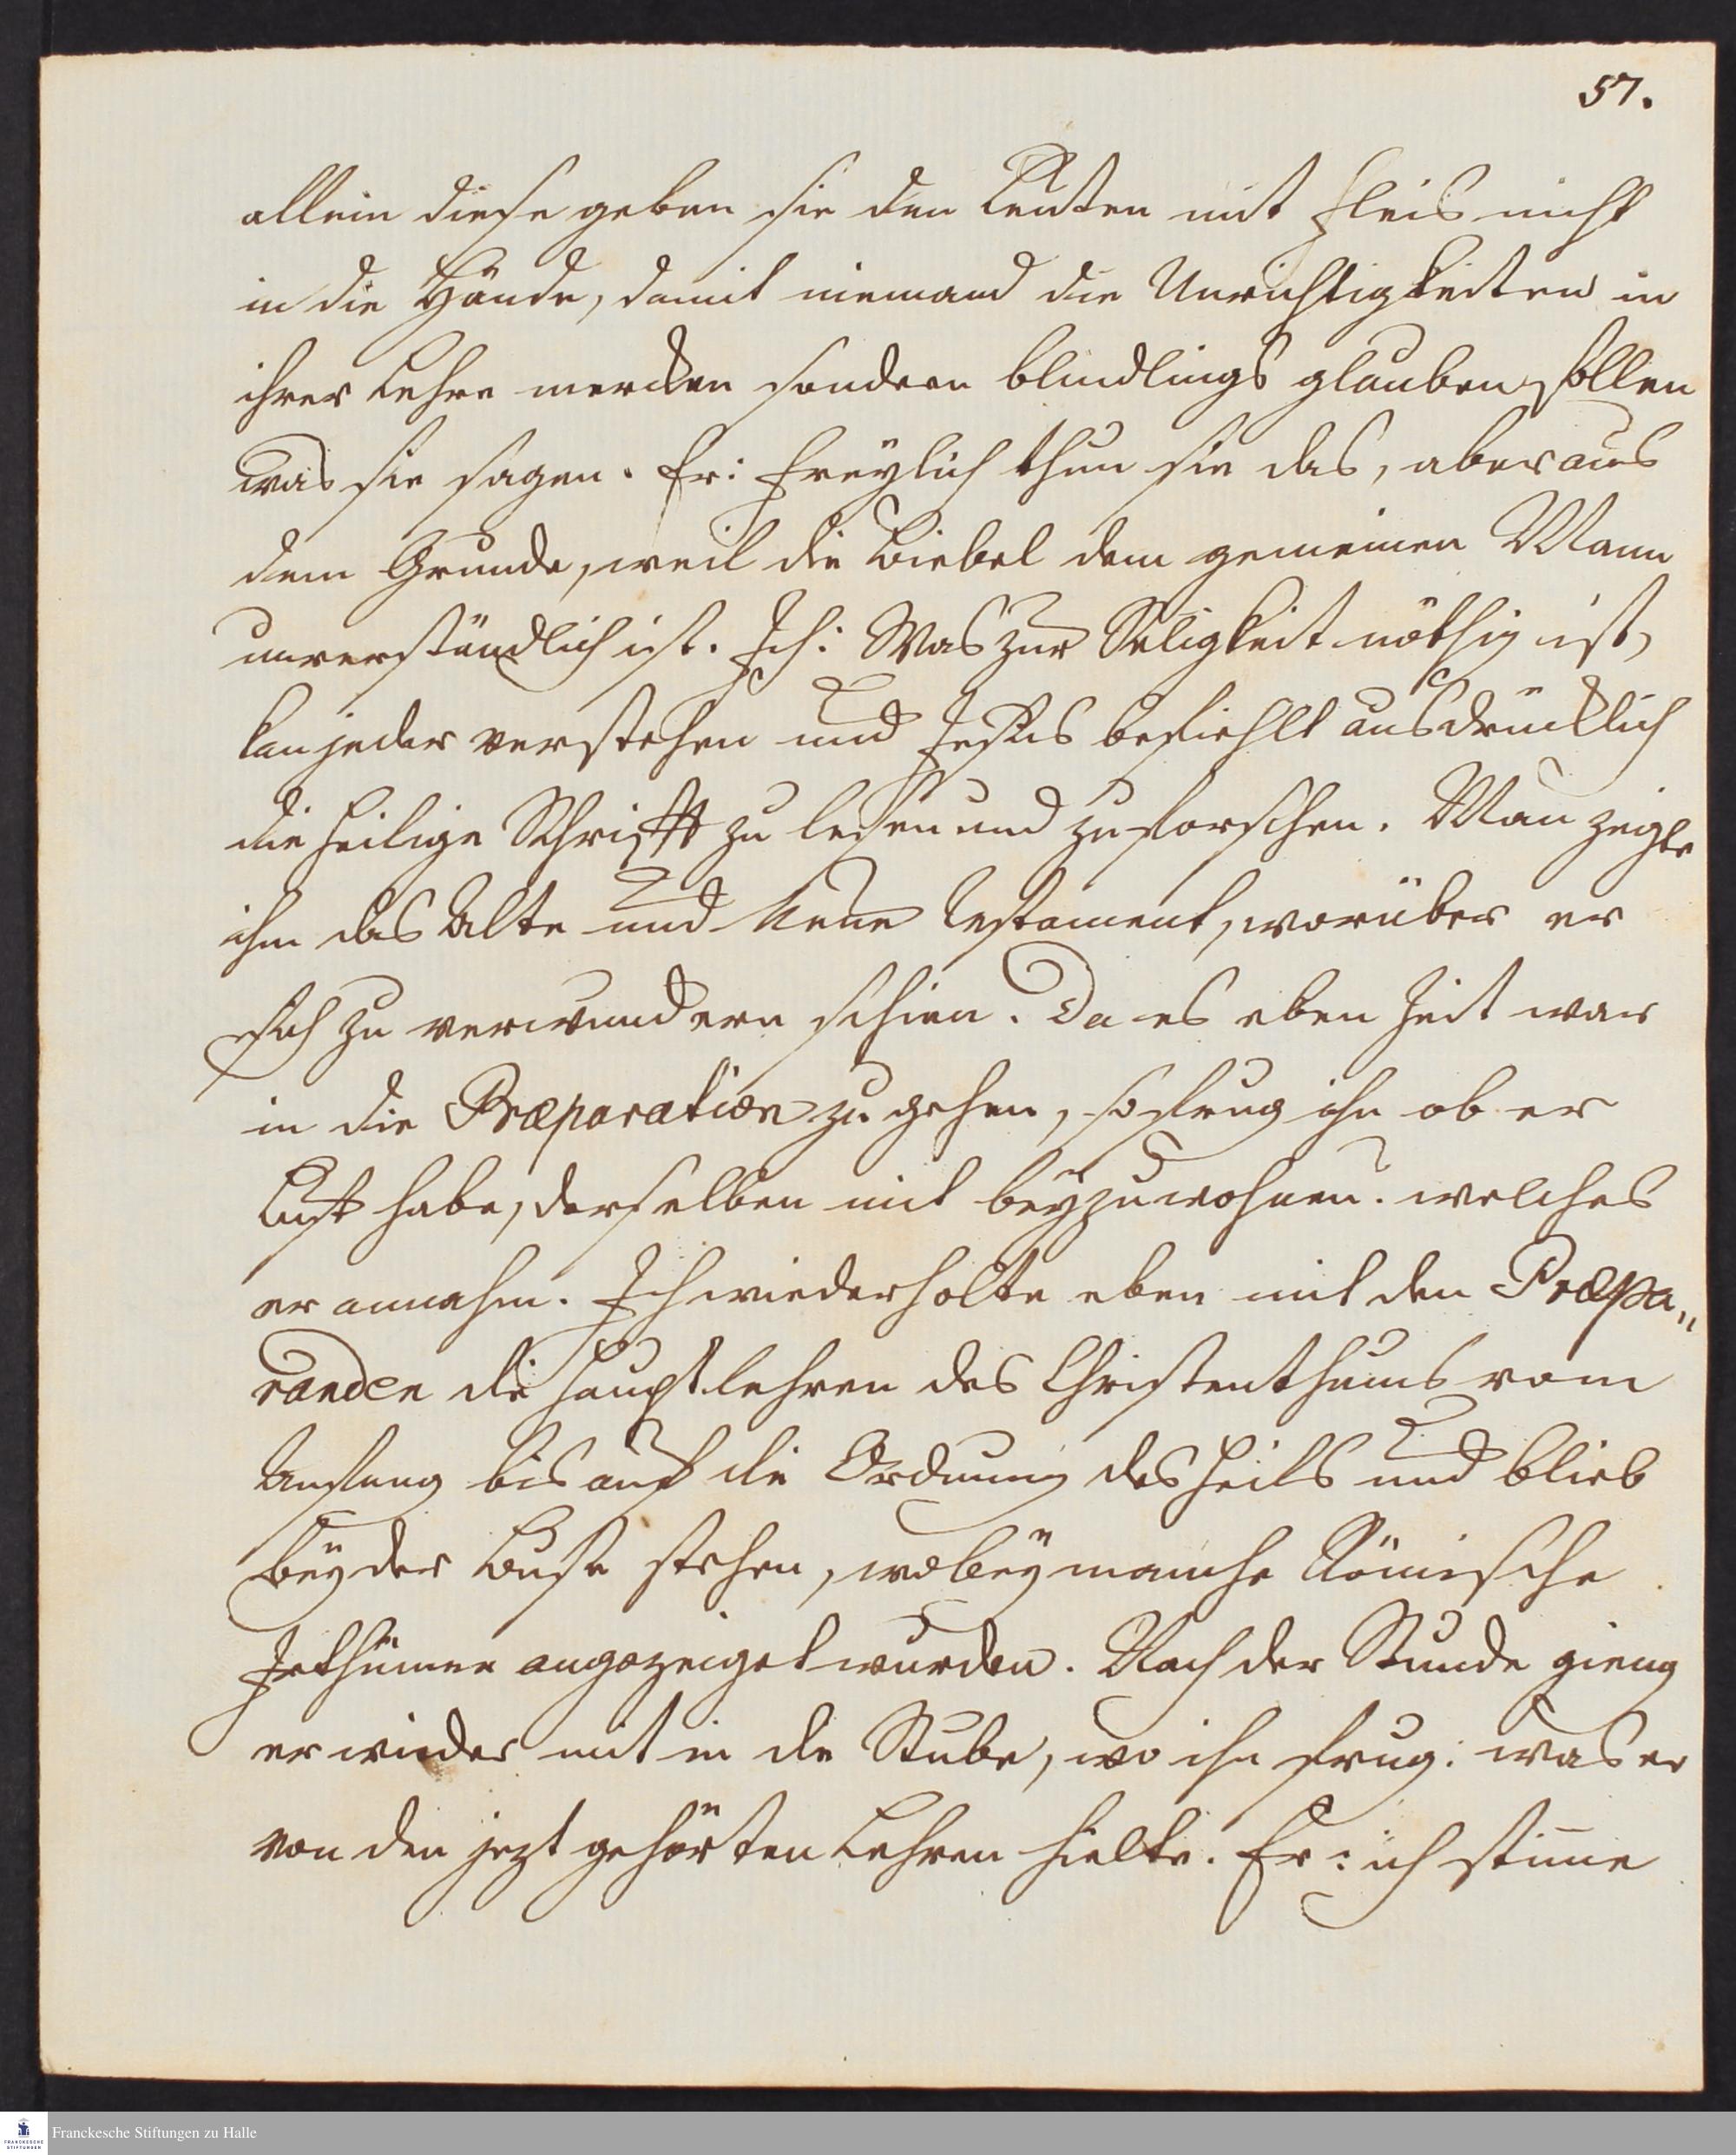 57.
allein diese geben sie den Leuten mit Fleis nicht
in die Hände, damit niemand die Unrichtigkeiten in
ihrer Lehre mercken sondern blindlings glauben sollen
was sie sagen. Er: Freÿlich thun sie das, aber aus
dem Grunde, weil die Biebel dem gemeinen Mann
unverständlich ist. Ich: Was zur Seligkeit nöthig ist,
kan jeder verstehen und Jesus befiehlt ausdrücklich
die heilige Schrifft zu lesen und zu forschen. Man zeigte
ihm das Alte und Neue Testament, worüber er
sich zu verwundern schien. Da es eben Zeit war
in die Præparation zu gehen, so frug ihn ob er
Lust habe, derselben mit beÿzuwohnen. welches
er annahm. Ich wiederholte eben mit den Præpa„
randen die Hauptlehren des Christenthums vom
Anfang bis auf die Ordnung des Heils und blieb
beÿ der Buße stehen, wobeÿ manche Römische
Irthümer angezeiget wurden. Nach der Stunde gieng
er wieder mit in die Stube, wo ihn frug: was er
von den jezt gehörten Lehren hielte. Er: ich stim̄e
Franckesche Stiftungen zu Halle
FRANCKESCHE
STIFTUNGEN